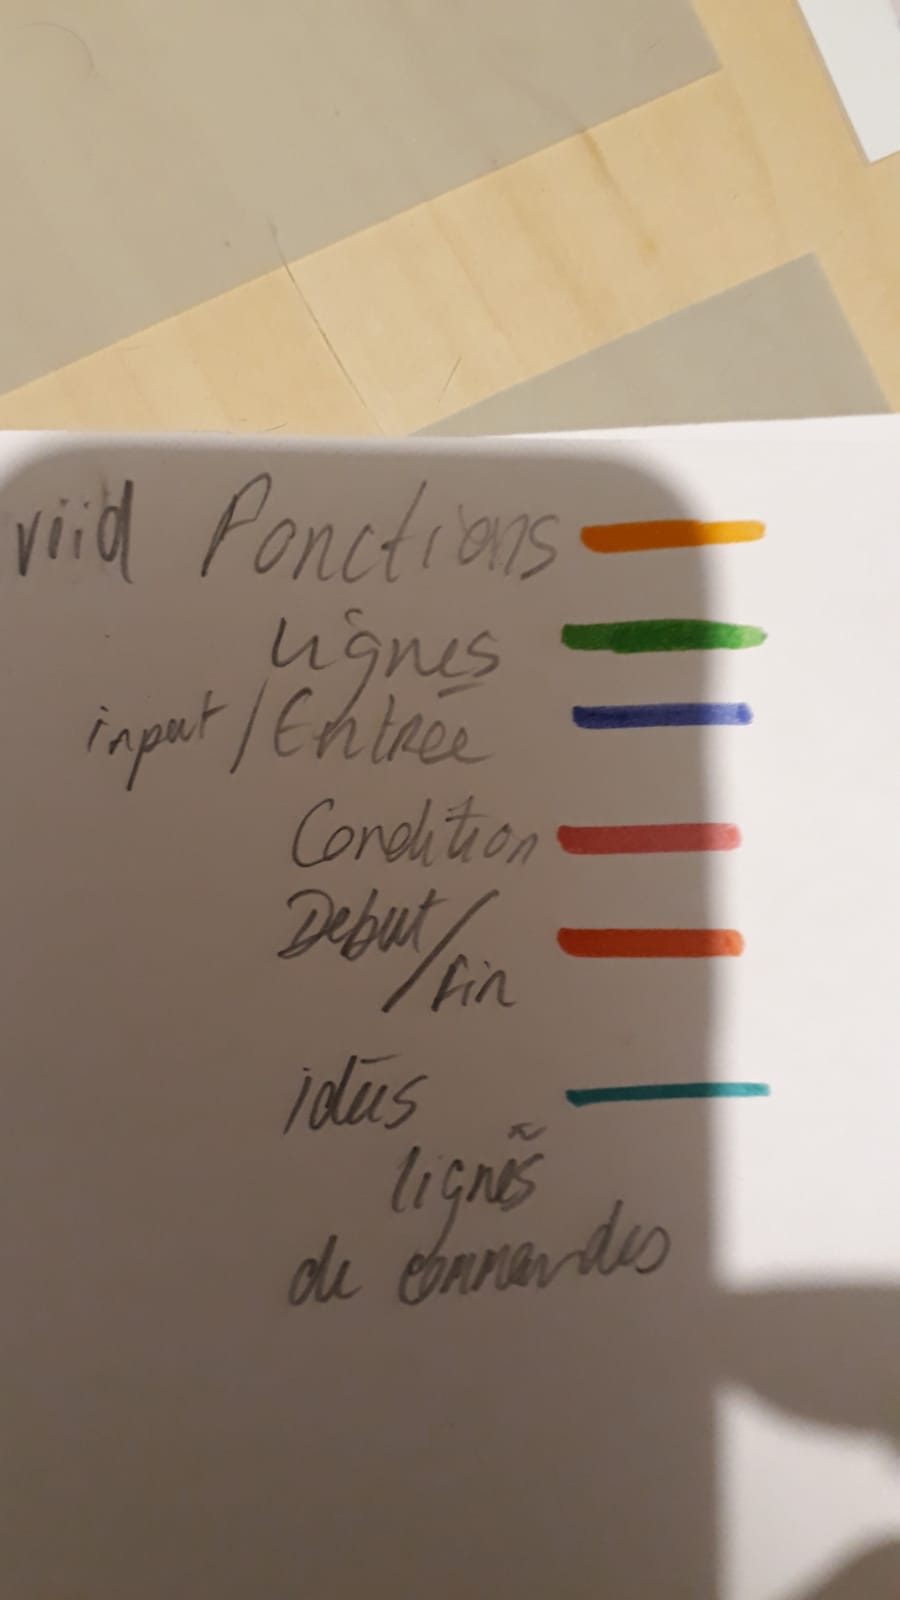 viid Fonctions
Lignes
input / Entrée
Condition
Debut / fin
idées
lignes
de commandes